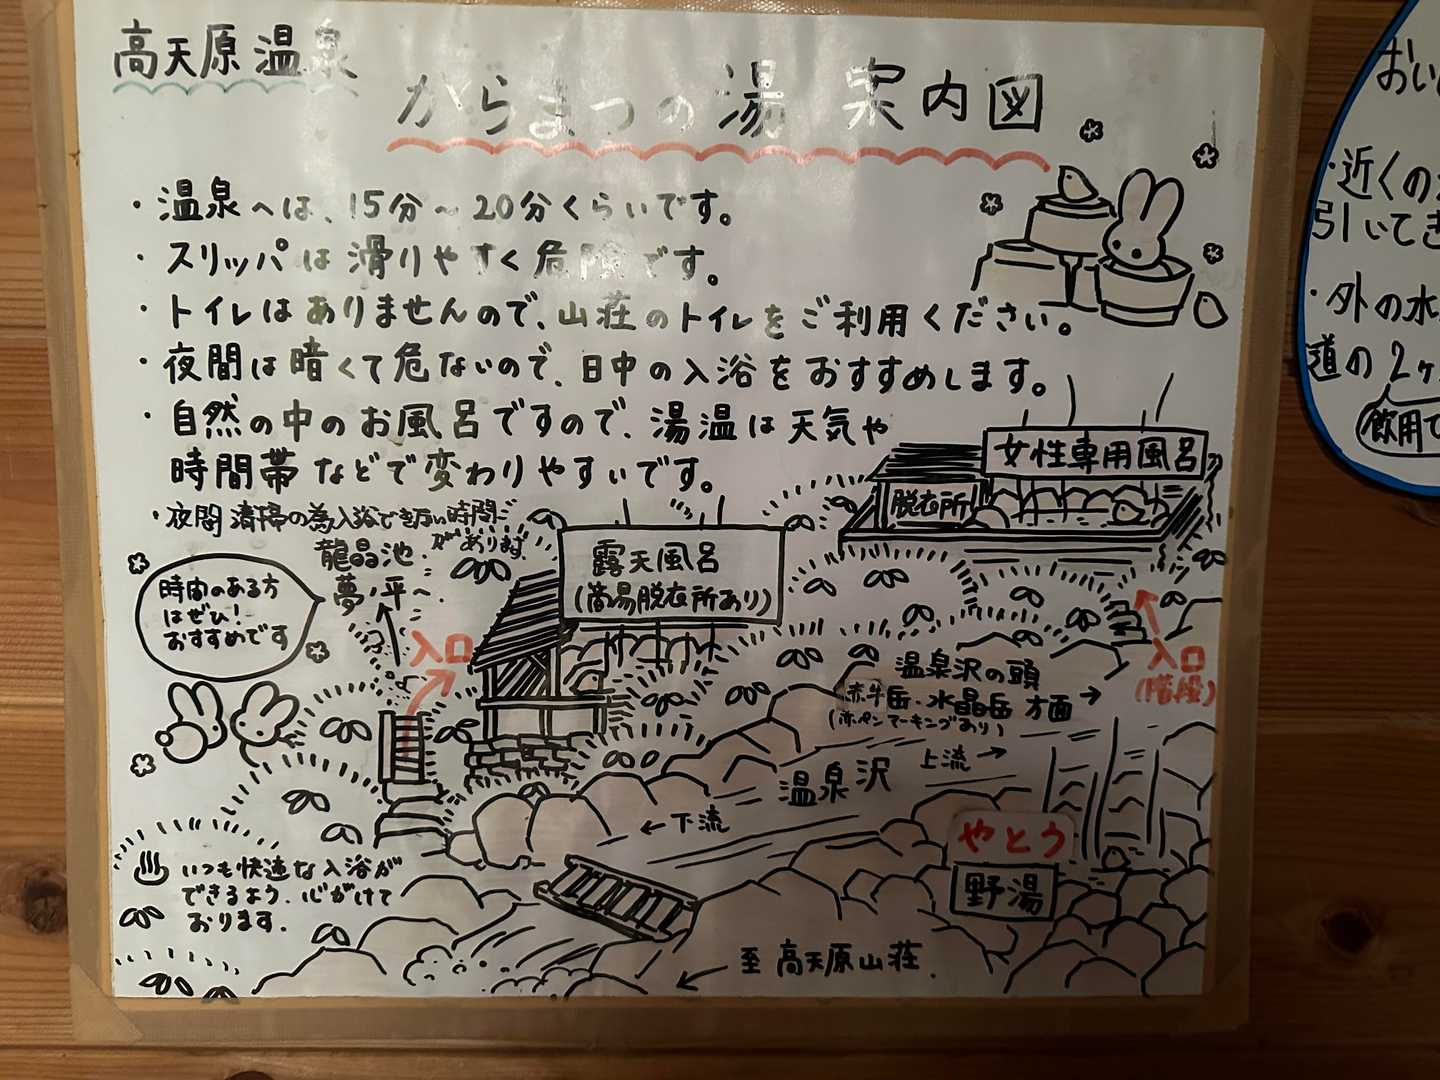 高天原温泉
からまつの湯 案内図
・温泉へは、15分〜20分くらいです。
・スリッパは滑りやすく危険です。
・トイレはありませんので、山荘のトイレをご利用ください。
・夜間は暗くて危ないので、日中の入浴をおすすめします。
・自然の中のお風呂ですので、湯温は天気や
時間帯などで変わりやすいです。
・夜間 清掃の為入浴できない時間
があります。
女性専用風呂
脱衣所
露天風呂
(簡易脱衣所あり)
龍晶池.
夢ノ平へ.
時間のある方
はぜひ!
おすすめです
入口
入口
(階段)
温泉沢の頭
赤牛岳・水晶岳 方面→
(赤ペンマーキングあり)
上流→
温泉沢
←下流
やとう
野湯
いつも快適な入浴が
できるよう、心がけて
おります.
至 高天原山荘.
おい
・近くの
引いてき
・外の水
道の2ヶ
飲用で